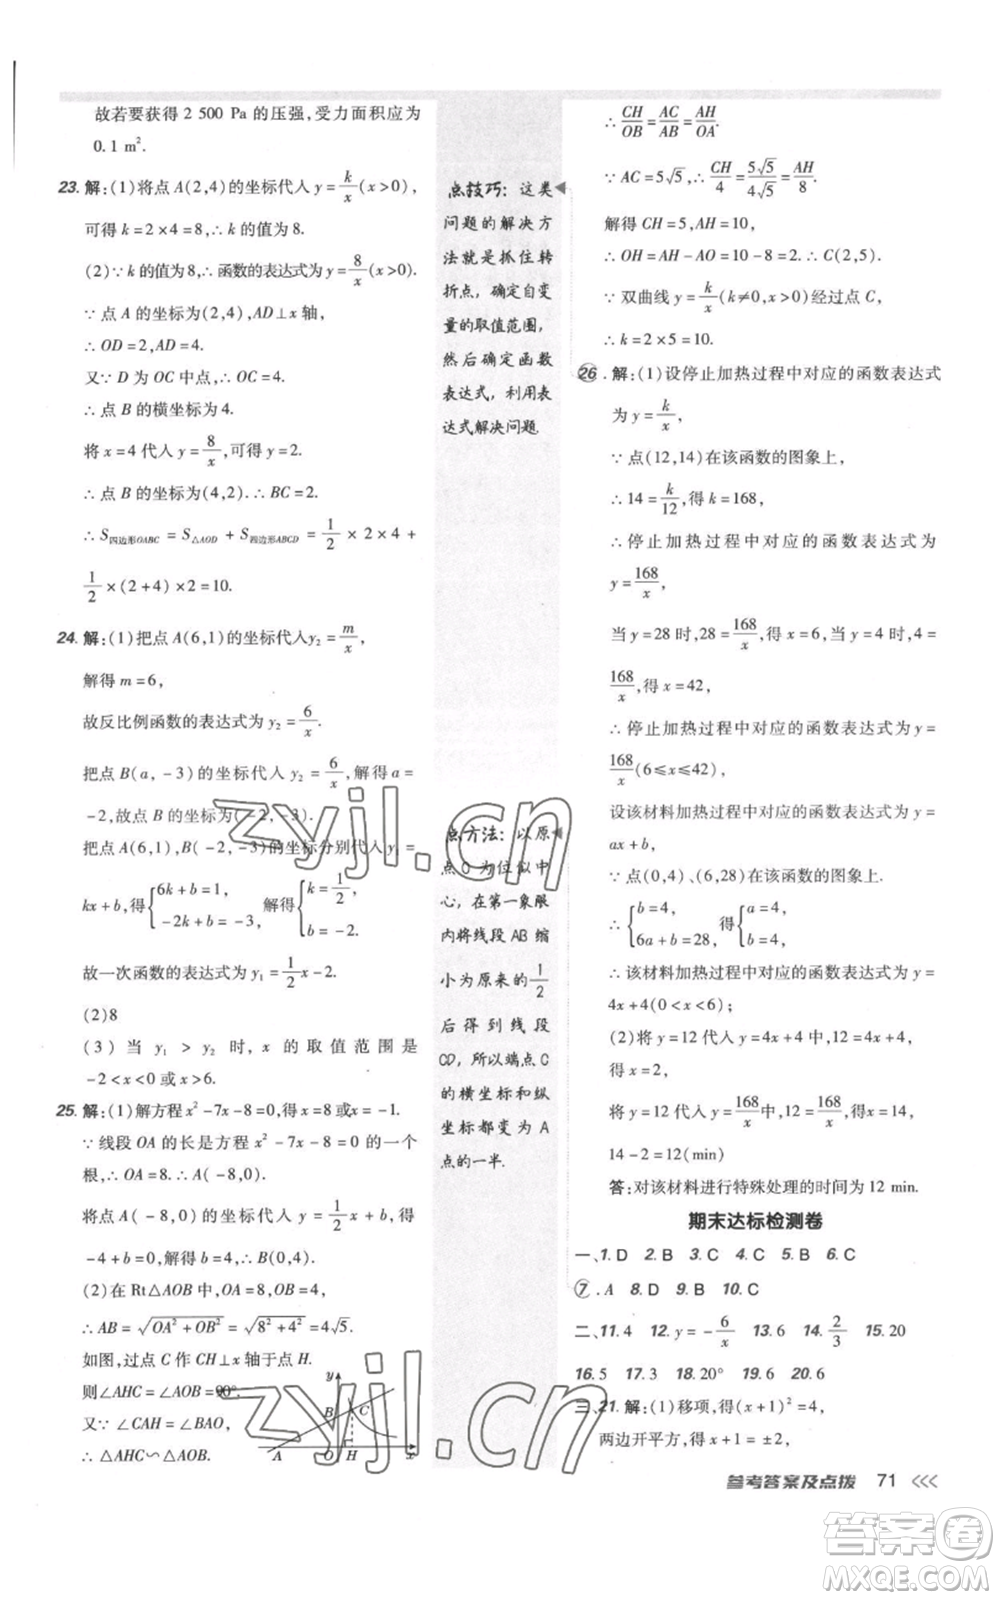 故若要获得 2 500 Pa 的压强,受力面积应为
0.1 m².
23. 解:(1)将点 A(2,4)的坐标代入 y=k/x(x>0),
可得 k=2×4=8,∴k 的值为 8.
(2)∵k 的值为 8,∴函数的表达式为 y=8/x(x>0).
∵点 A 的坐标为(2,4),AD⊥x 轴,
∴OD=2,AD=4.
又∵D 为 OC 中点,∴OC=4.
∴点 B 的横坐标为 4.
将 x=4 代入 y=8/x,可得 y=2.
∴点 B 的坐标为(4,2).∴BC=2.
∴S四边形OABC=S△AOD+S四边形ABCD=1/2×2×4+
1/2×(2+4)×2=10.
24. 解:(1)把点 A(6,1)的坐标代入y₂=m/x,
解得 m=6,
故反比例函数的表达式为 y₂=6/x.
把点 B(a,-3)的坐标代入 y₂=6/x,解得 a=
-2,故点 B 的坐标为(-2,-3).
把点 A(6,1),B(-2,-3)的坐标分别代入 y₁=
kx+b,得{6k+b=1, -2k+b=-3, 解得{k=1/2, b=-2.
故一次函数的表达式为 y₁=1/2x-2.
(2)8
(3)当 y₁>y₂ 时,x 的取值范围是
-2<x<0或x>6.
25. 解:(1)解方程x²-7x-8=0,得x=8或x=-1.
∵线段 OA 的长是方程 x²-7x-8=0 的一个
根,∴OA=8.∴A(-8,0).
将点 A(-8,0)的坐标代入 y=1/2x+b,得
-4+b=0,解得 b=4.∴B(0,4).
(2)在 Rt△AOB 中,OA=8,OB=4,
∴AB=√(OA²+OB²)=√(8²+4²)=4√5.
如图,过点 C 作 CH⊥x 轴于点 H.
则∠AHC=∠AOB=90°.
又∵∠CAH=∠BAO,
∴△AHC∽△AOB.
y
B
C
A
O
H
x
点技巧:这类
问题的解决方
法就是抓住转
折点,确定自变
量的取值范围,
然后确定函数
表达式,利用表
达式解决问题.
点方法:以原
点O为位似中
心,在第一象限
内将线段AB缩
小为原来的1/2
后得到线段
CD,所以端点C
的横坐标和纵
坐标都变为A
点的一半.
∴CH/OB=AC/AB=AH/OA.
∵AC=5√5,∴CH/4=5√5/4√5=AH/8.
解得 CH=5,AH=10,
∴OH=AH-OA=10-8=2.∴C(2,5).
∵双曲线 y=k/x(k≠0,x>0)经过点 C,
∴k=2×5=10.
26. 解:(1)设停止加热过程中对应的函数表达式
为 y=k/x,
∵点(12,14)在该函数的图象上,
∴14=k/12,得 k=168,
∴停止加热过程中对应的函数表达式为
y=168/x,
当 y=28 时,28=168/x,得 x=6,当 y=4 时,4=
168/x,得 x=42,
∴停止加热过程中对应的函数表达式为 y=
168/x(6≤x≤42),
设该材料加热过程中对应的函数表达式为 y=
ax+b,
∵点(0,4)、(6,28)在该函数的图象上.
∴{b=4, 6a+b=28, 得{a=4, b=4,
∴该材料加热过程中对应的函数表达式为 y=
4x+4(0<x<6);
(2)将 y=12 代入 y=4x+4,得 12=4x+4,
得 x=2,
将 y=12 代入 y=168/x,得 12=168/x,得 x=14,
14-2=12(min)
答:对该材料进行特殊处理的时间为 12 min.
期末达标检测卷
一、1. D 2. B 3. C 4. C 5. B 6. C
7. A 8. D 9. B 10. C
二、11. 4 12. y=-6/x 13. 6 14. 2/3 15. 20
16. 5 17. 3 18. 20° 19. 6 20. 6
三、21. 解:(1)移项,得(x+1)²=4,
两边开平方,得 x+1=±2,
参考答案及点拨 71 <<<
zyjl.cn
zyjl.cn
答案卷
MXQE.COM